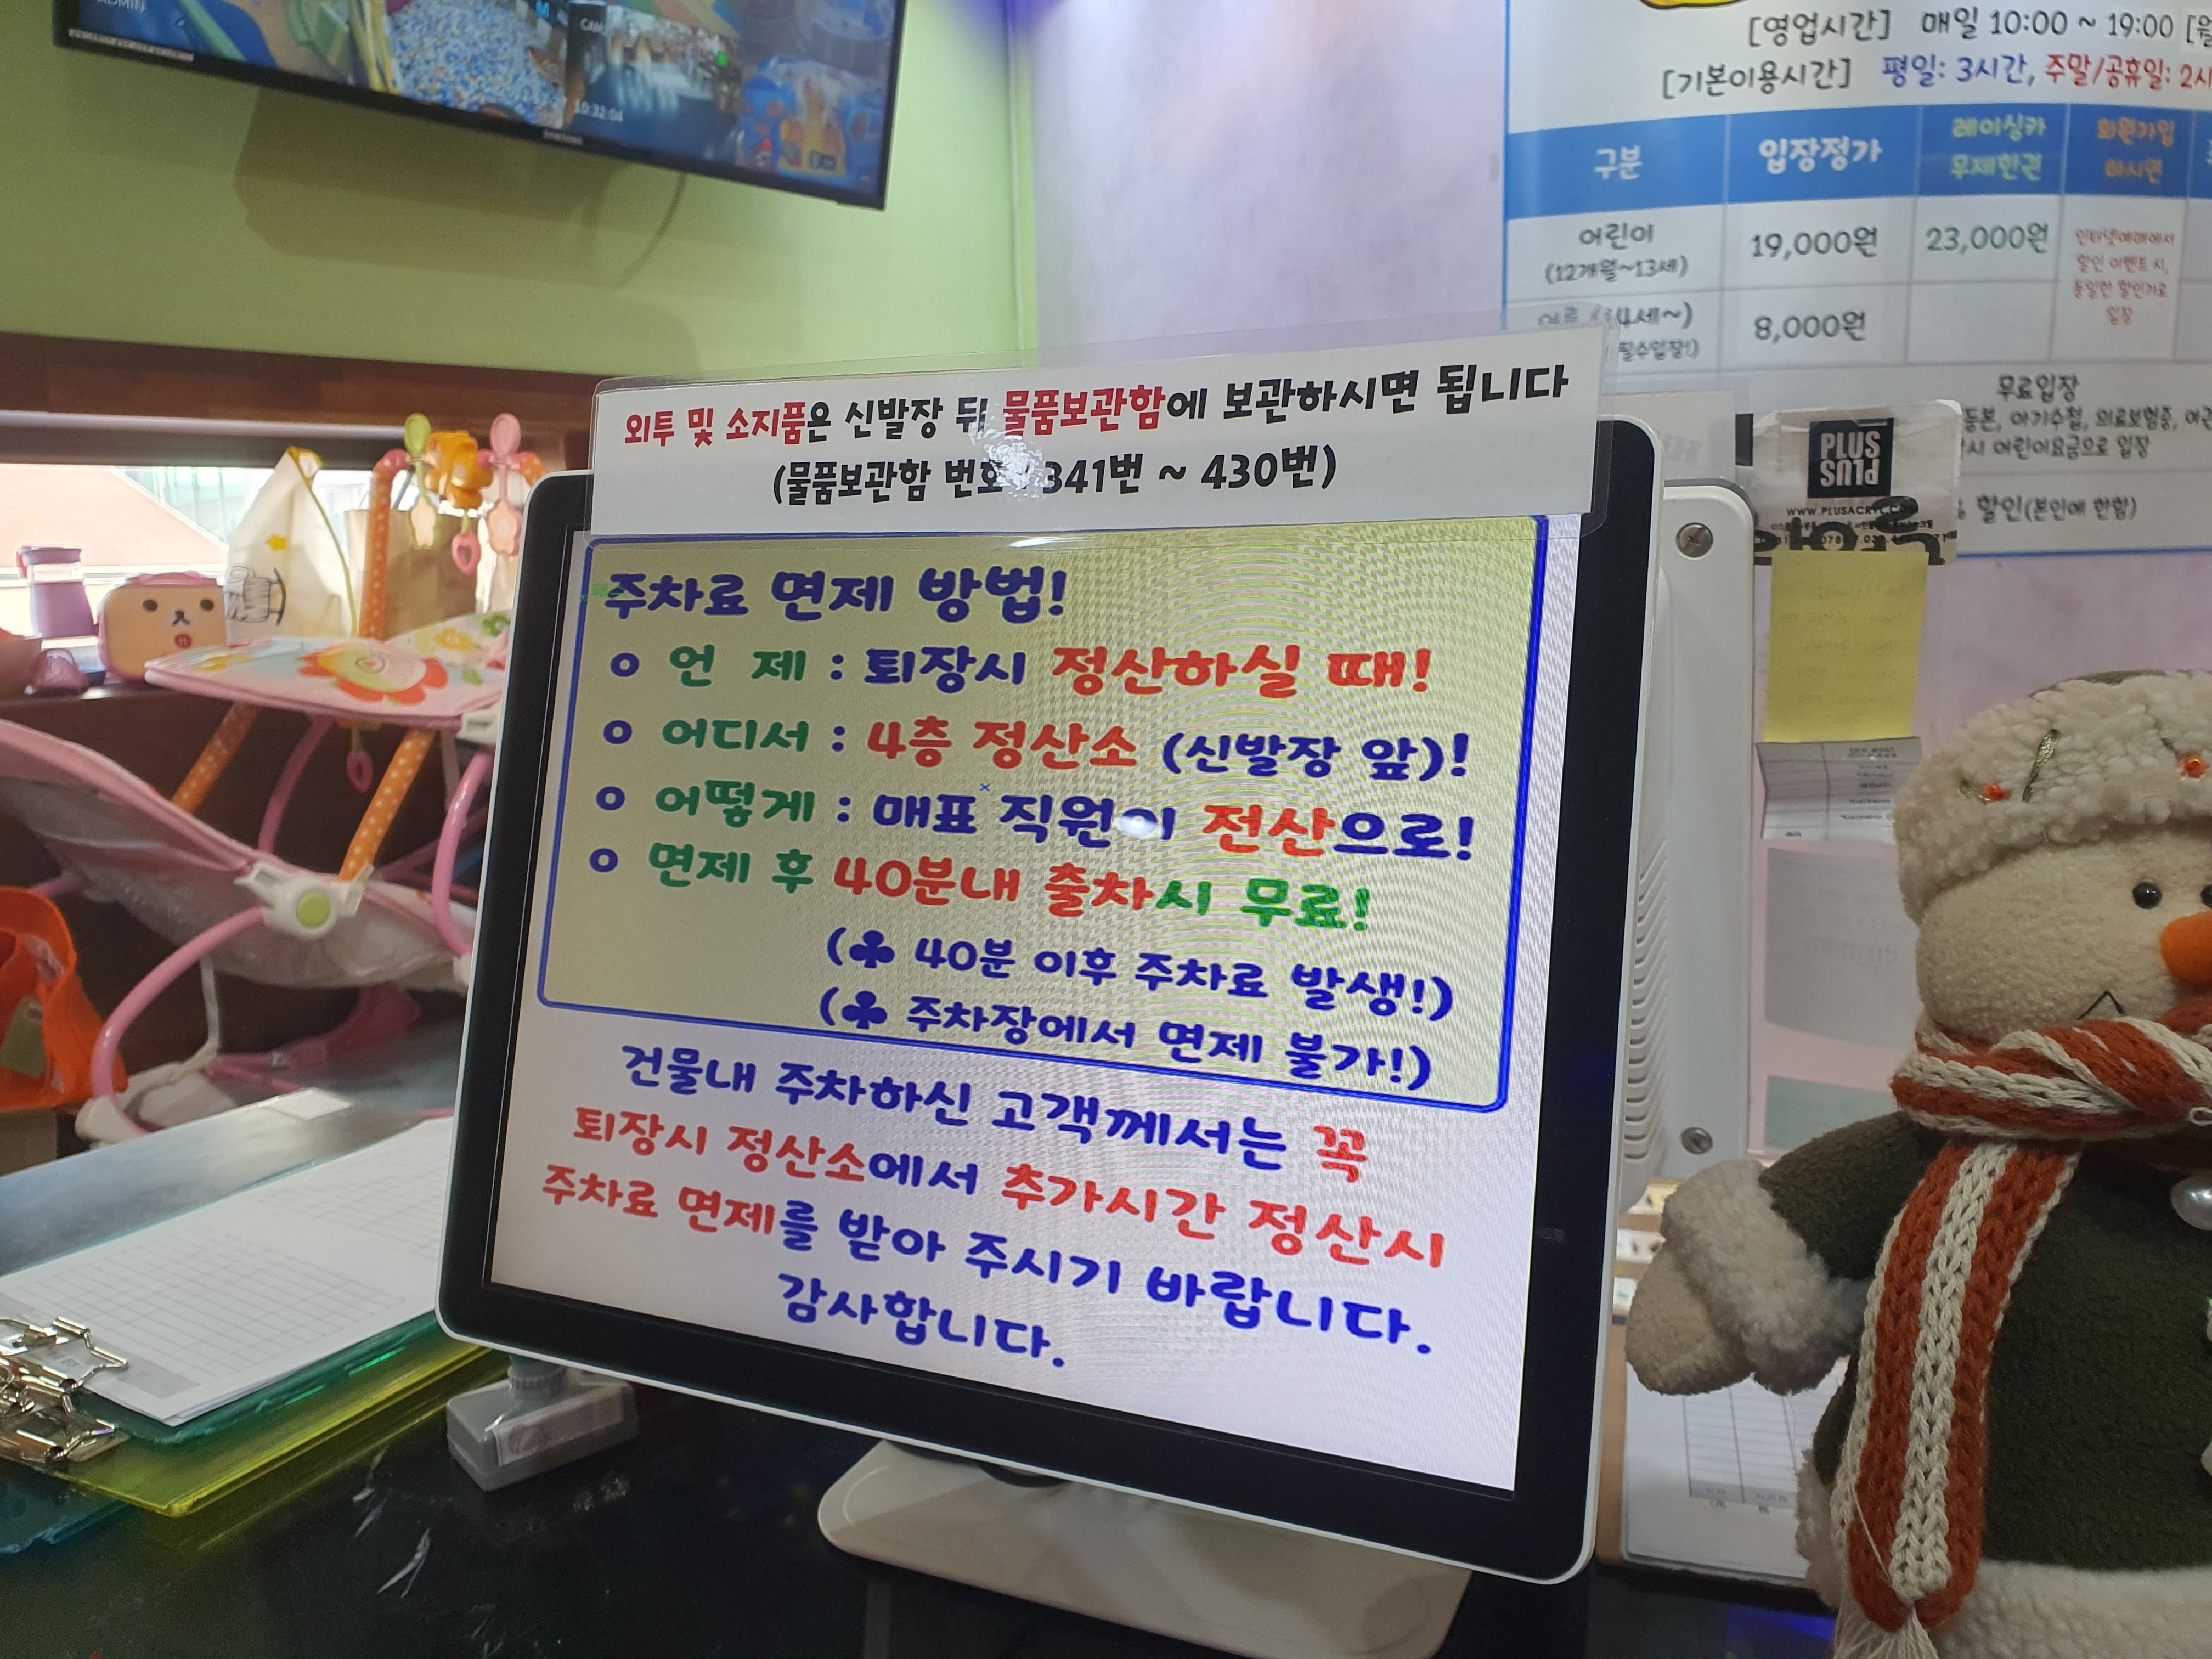 ADMIN
10:32:04
SAMSUNG
[영업시간] 매일 10:00 ~ 19:00
[기본이용시간] 평일: 3시간, 주말/공휴일:
구분 입장정가 레이싱카 무제한권 회원가입 하시면
어린이 (12개월~13세) 19,000원 23,000원 인터넷예매에서 할인 이벤트 시, 동일한 할인가로 입장
8,000원
무료입장
아기수첩, 의료보험증,
어린이요금으로 입장
할인(본인에 한함)
PLUS
PLUS
외투 및 소지품은 신발장 뒤 물품보관함에 보관하시면 됩니다
(물품보관함 번호 : 341번 ~ 430번)
주차료 면제 방법!
o 언 제 : 퇴장시 정산하실 때!
o 어디서 : 4층 정산소 (신발장 앞)!
o 어떻게 : 매표 직원이 전산으로!
o 면제 후 40분내 출차시 무료!
(♣ 40분 이후 주차료 발생!)
(♣ 주차장에서 면제 불가!)
건물내 주차하신 고객께서는 꼭
퇴장시 정산소에서 추가시간 정산시
주차료 면제를 받아 주시기 바랍니다.
감사합니다.